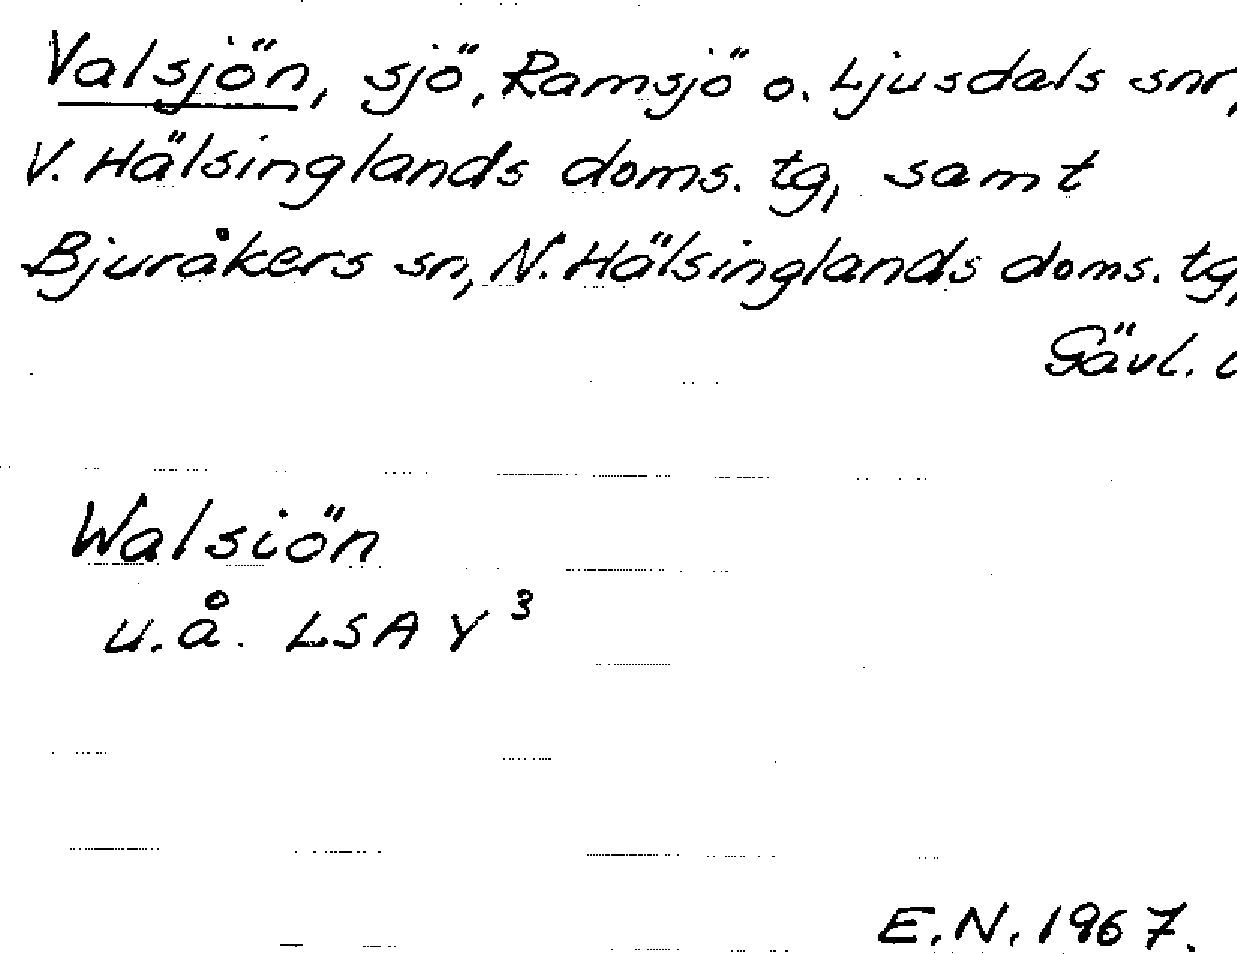 Valsjön, sjö, Ramsjö o. Ljusdals snr,
V. Hälsinglands doms. tg, samt
Bjuråkers sn, N. Hälsinglands doms. tg,
Gävl. l
Walsiön
u.å. LSA Y 3
E.N. 1967.